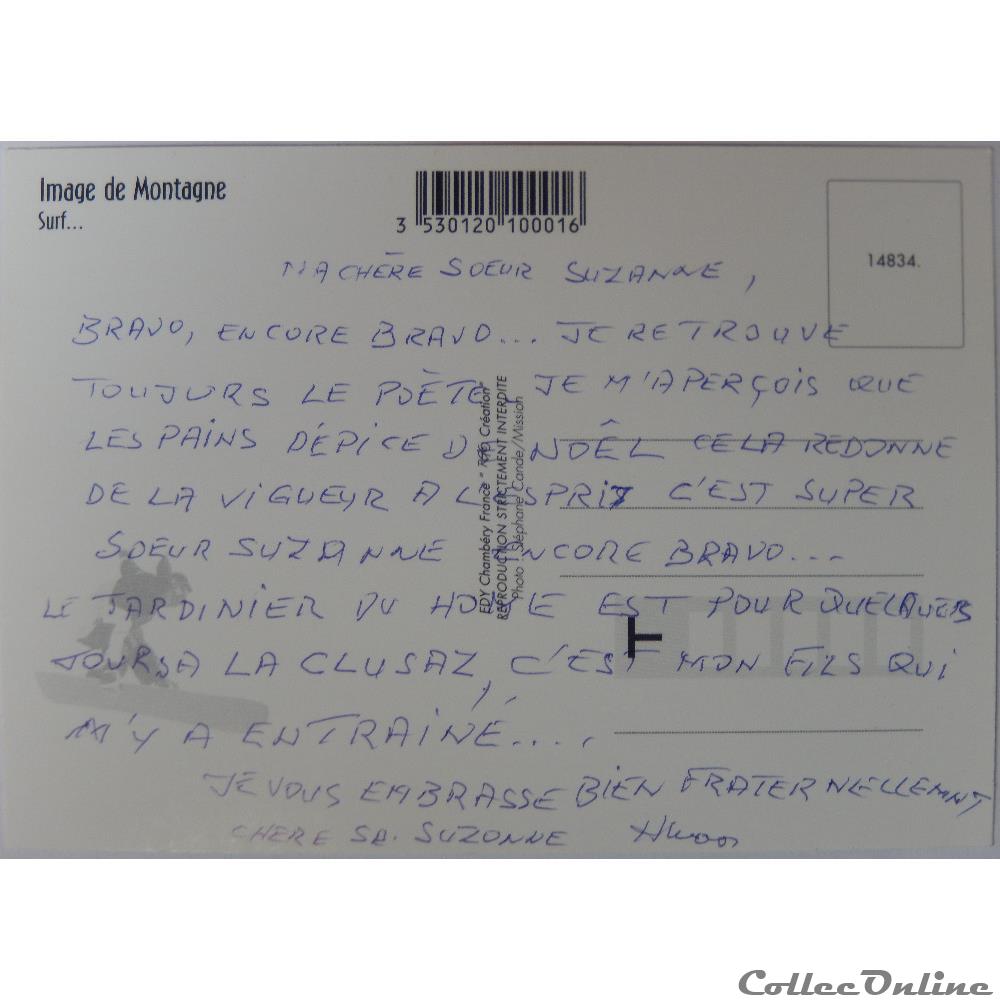 Image de Montagne
Surf...
3 530120 100016
14834.
MA CHÈRE SOEUR SUZANNE,
BRAVO, ENCORE BRAVO... JE RETROUVE
TOUJURS LE POÈTE, JE M'APERÇOIS QUE
LES PAINS DÉPICE DE NOÊL CELA REDONNE
DE LA VIGUEYR A L'ESPRIT C'EST SUPER
SOEUR SUZANNE ENCORE BRAVO...
LE JARDINIER DU HOUCLE EST POUR QUELQUES
JOURS A LA CLUSAZ, C'EST MON FILS QUI
M'Y A ENTRAINÉ....
JE VOUS EMBRASSE BIEN FRATERNELLEMNT
CHERE SR. SUZONNE
EDY Chambéry France
Création
REPRODUCTION STRICTEMENT INTERDITE
Photo : Stéphane Cande/Mission
T
CollecOnline